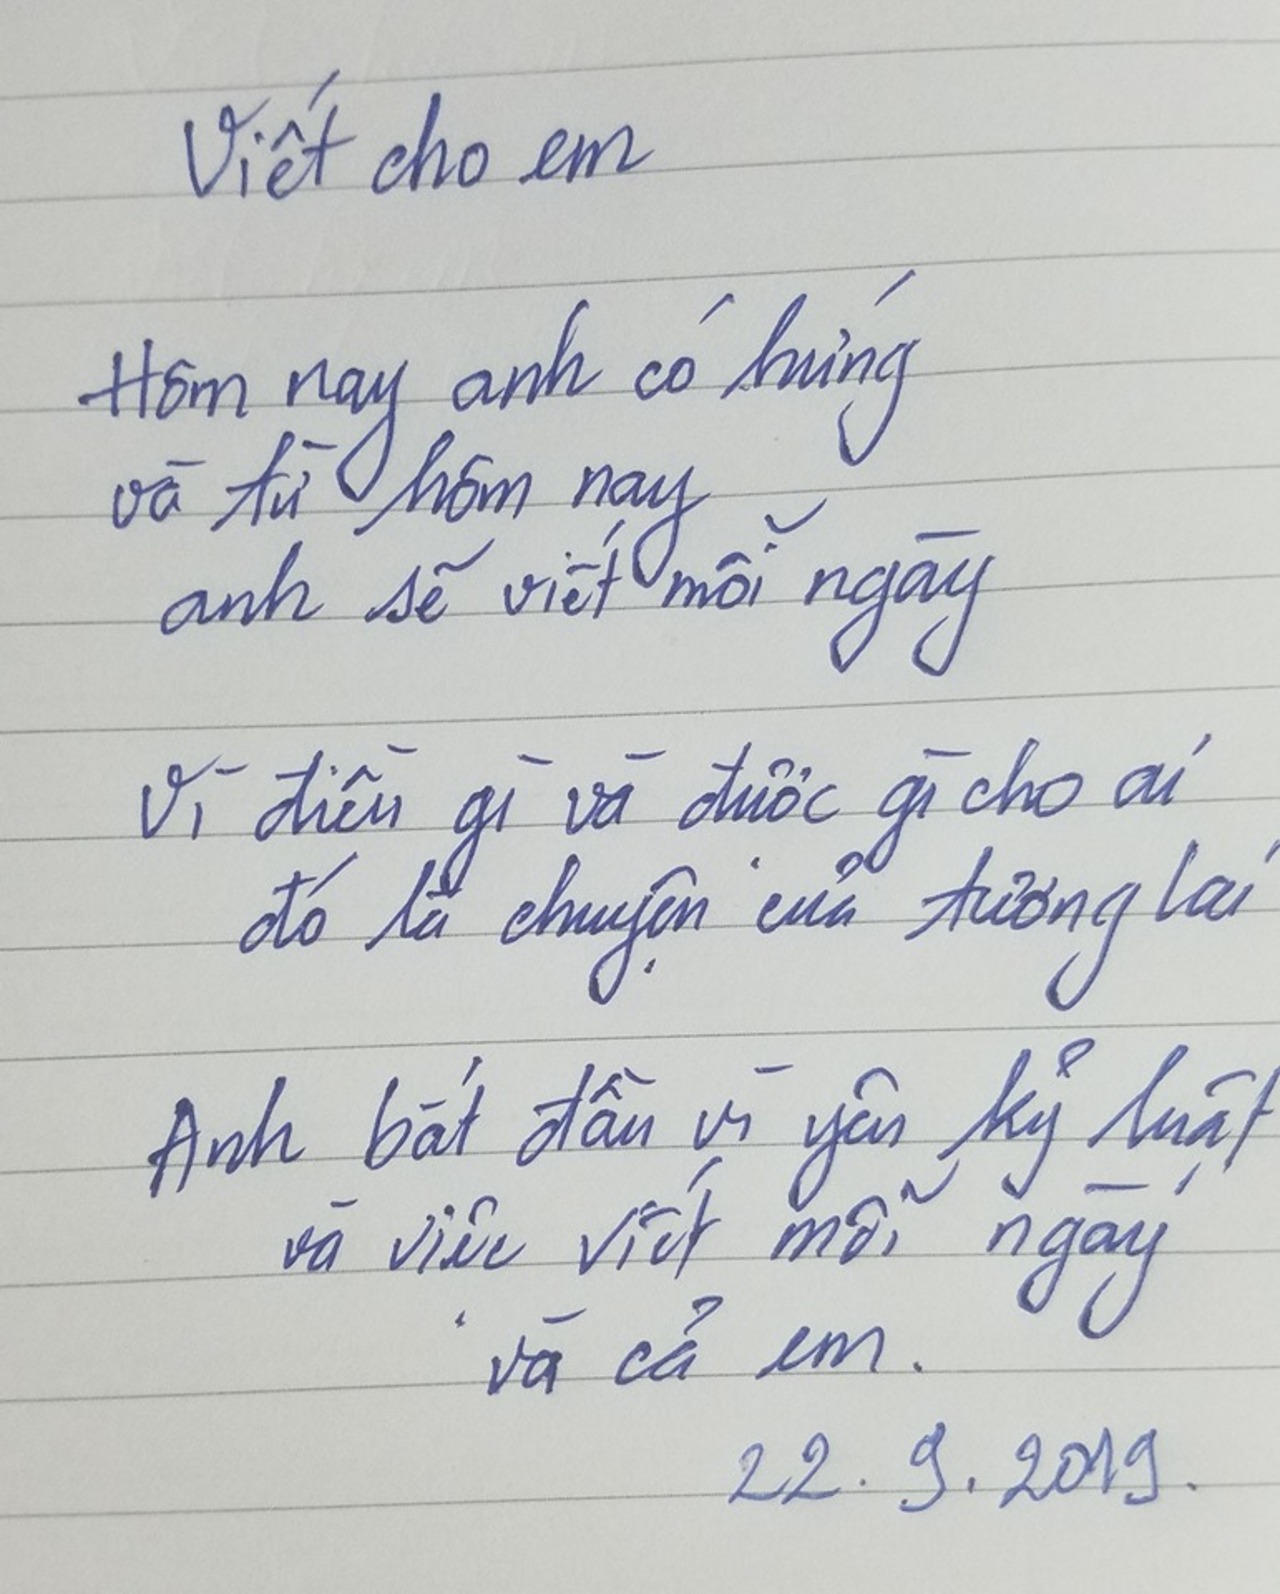 Viết cho em
Hôm nay anh có hứng
và từ hôm nay
anh sẽ viết mỗi ngày
Vì điều gì và được gì cho ai
đó là chuyện của tương lai
Anh bắt đầu vì yêu kỷ luật
và việc viết mỗi ngày
và cả em.
22.9.2019.